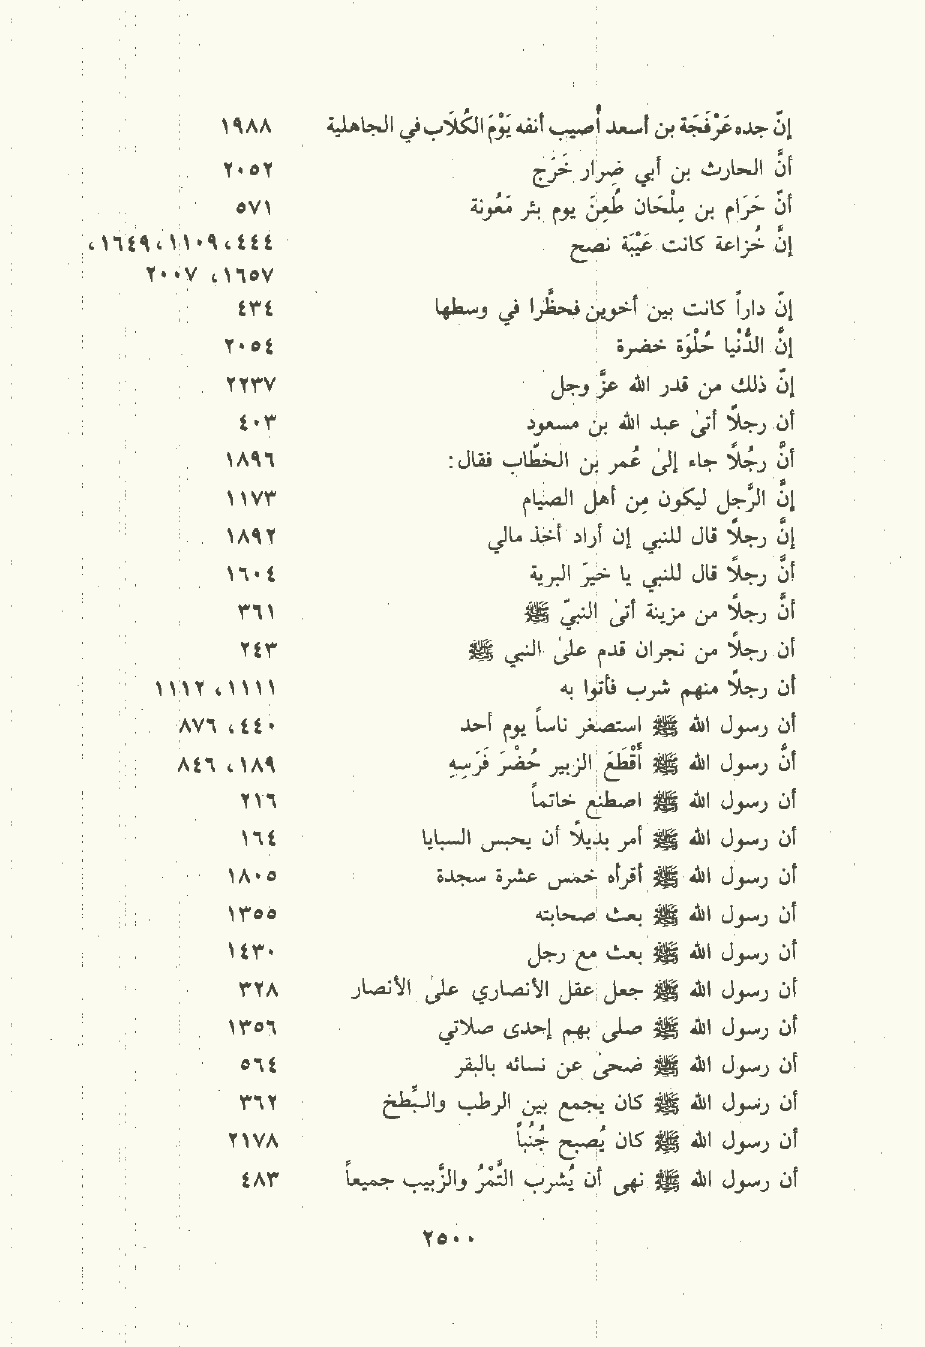 إنّ جده عَرْفَجَة بن أسعد أُصيب أنفه يَوْمَ الكُلَاب في الجاهلية ١٩٨٨
أنَّ الحارث بن أبي ضِرار خَرَج ٢٠٥٢
أنّ حَرَام بن مِلْحَان طُعِنَ يوم بئر مَعُونة ٥٧١
إنَّ خُزاعة كانت عَيْبَة نصح ٤٤٤، ١١٠٩، ١٦٤٩،
١٦٥٧، ٢٠٠٧
إنّ داراً كانت بين أخوين فحظَّرا في وسطها ٤٣٤
إنَّ الدُّنْيا حُلْوَة خضرة ٢٠٥٤
إنّ ذلك من قدر الله عزَّ وجل ٢٢٣٧
أن رجلًا أتىٰ عبد الله بن مسعود ٤٠٣
أنَّ رجُلًا جاء إلىٰ عُمر بن الخطّاب فقال: ١٨٩٦
إنَّ الرَّجل ليكون مِن أهل الصيام ١١٧٣
إنَّ رجلًا قال للنبي إن أراد أخذ مالي ١٨٩٢
أنَّ رجلًا قال للنبي يا خيرَ البرية ١٦٠٤
أنَّ رجلًا من مزينة أتىٰ النبيّ ﷺ ٣٦١
أن رجلًا من نجران قدم علىٰ النبي ﷺ ٢٤٣
أن رجلًا منهم شرب فأتوا به ١١١١، ١١١٢
أن رسول الله ﷺ استصغر ناساً يوم أحد ٤٤٠، ٨٧٦
أنَّ رسول الله ﷺ أَقْطَعَ الزبير حُضْرَ فَرَسِهِ ١٨٩، ٨٤٦
أن رسول الله ﷺ اصطنع خاتماً ٢١٦
أن رسول الله ﷺ أمر بديلًا أن يحبس السبايا ١٦٤
أن رسول الله ﷺ أقرأه خمس عشرة سجدة ١٨٠٥
أن رسول الله ﷺ بعث صحابته ١٣٥٥
أن رسول الله ﷺ بعث مع رجل ١٤٣٠
أن رسول الله ﷺ جعل عقل الأنصاري علىٰ الأنصار ٣٢٨
أن رسول الله ﷺ صلى بهم إحدى صلاتي ١٣٥٦
أن رسول الله ﷺ ضحىٰ عن نسائه بالبقر ٥٦٤
أن رسول الله ﷺ كان يجمع بين الرطب والبِّطخ ٣٦٢
أن رسول الله ﷺ كان يُصبح جُنُباً ٢١٧٨
أن رسول الله ﷺ نهى أن يُشرب التَّمْرُ والزَّبيب جميعاً ٤٨٣
٢٥٠٠